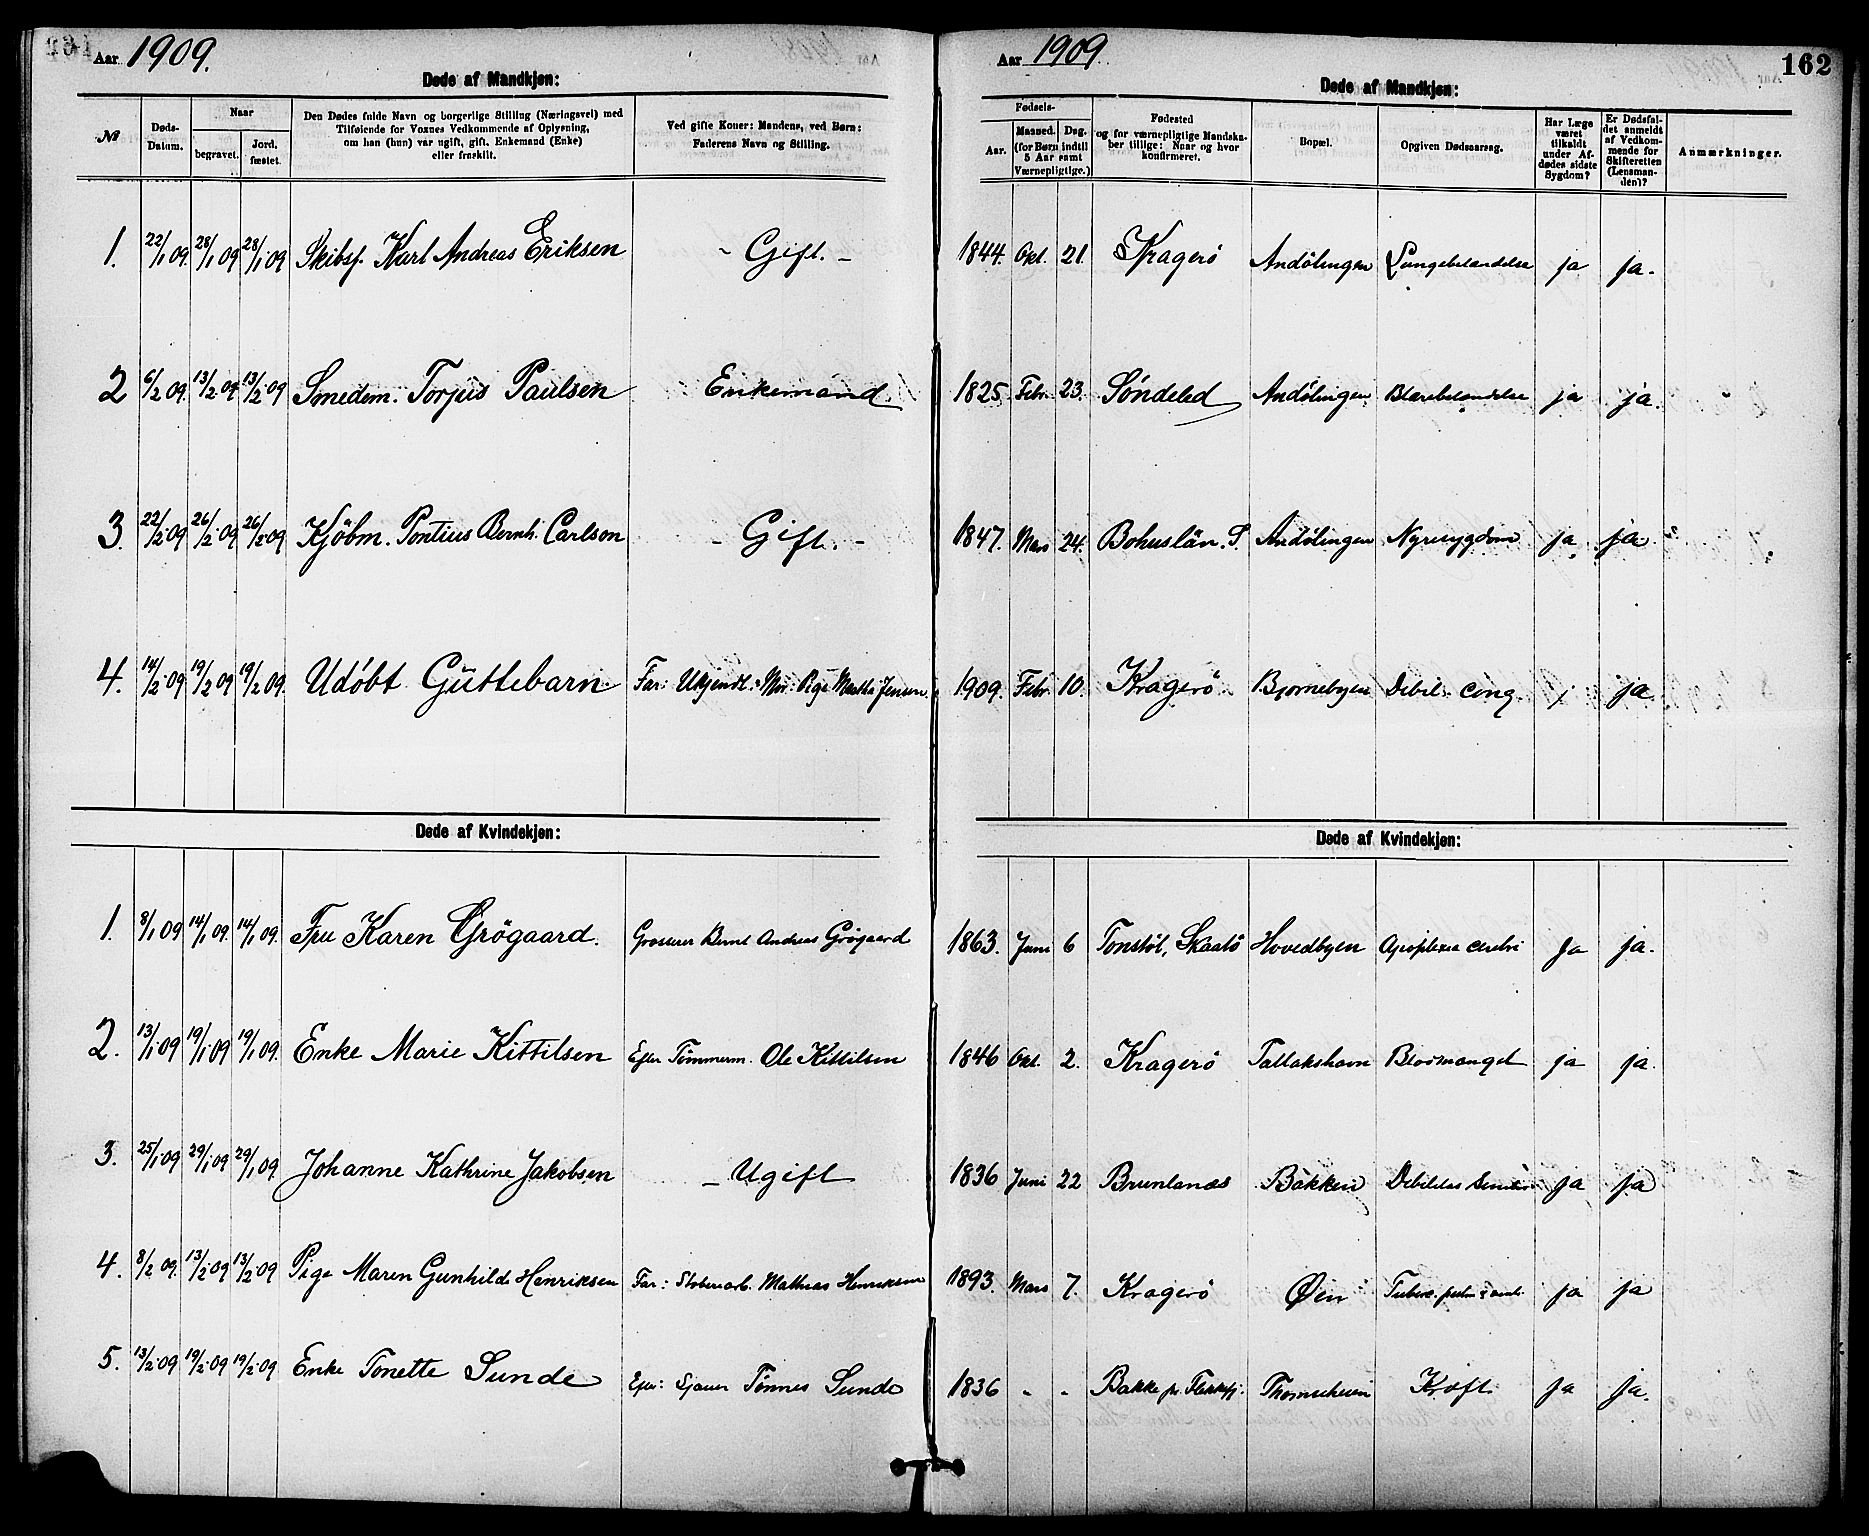 Aar 1909.
Døde af Mandkjøn:
№
Døds-Datum.
Naar
begravet.
Jord. fæstet.
Den Dødes fulde Navn og borgerlige Stilling (Næringsvei) med
Tilføiende for Voxnes Vedkommende af Oplysning,
om han (hun) var ugift, gift, Enkemand (Enke)
eller fraskilt.
Ved gifte Koner: Mandens, ved Børn:
Faderens Navn og Stilling.
1. 22/1 09 28/1 09 28/1 09 Skibsf. Karl Andreas Eriksen - Gift. -
2 6/2 09. 13/2 09 13/2 09 Smedem. Torjus Paulsen Enkemand.
3. 22/2 09 26/2 09 26/2 09 Kjøbm. Pontius Bernh. Carlson - Gift. -
4. 14/2 09 19/2 09 19/2 09. Udøbt Guttebarn Far: Ukjendt. Mor: Pige Martha Jensen
Døde af Kvindekjøn:
1. 8/1 09 14/1 09. 14/1 09. Fru Karen Grøgaard. Grosserer Bernt Andreas Grøgaard
2. 13/1 09 19/1 09 19/1 09. Enke Marie Kittilsen Efter Tømmerm. Ole Kittilsen
3. 25/1 09 29/1 09 29/1 09 Johanne Kathrine Jakobsen - Ugift
4. 8/2 09. 13/2 09 13/2 09 Pige Maren Gunhilde Henriksen Far: Mathias Henriksen
5. 13/2 09 19/2 09 19/2 09 Enke Tonette Sunde Efter: Sjauer Tønnes Sunde
Aar 1909.
162
Døde af Mandkjøn:
Fødsels-
Aar.
Maaned. Dag.
(for Børn indtil
5 Aar samt
Værnepligtige.)
Fødested
og for værnepligtige Mandska-
ber tillige: Naar og hvor
konfirmeret.
Bopæl.
Opgiven Dødsaarsag.
Har Læge
været
tilkaldt
under Af-
dødes sidste
Sygdom?
Er Dødsfal-
det anmeldt
af Vedkom-
mende for
Skifteretten
(Lensman-
den)?
Anmærkninger.
1844. Okt. 21. Kragerø Andølingen Lungebetændelse ja ja.
1825 Febr. 23. Søndeled Andølingen Blærebetændelse ja ja.
1847. Mars 24. Bohuslän. S. Andølingen Nyresygdom ja ja
1909. Febr. 10. Kragerø Bjørnebyen Debil. cong. j ja
Døde af Kvindekjøn:
1863. Juni 6 Tonstøl, Skaatø Hovedbyen Apoplexia cerebri Ja ja.
1846 Okt. 2. Kragerø Tallakshavn Blodmangel ja ja.
1836 Juni 22 Brunlanæs Bakken Debilitas ja ja
1893. Mars 7. Kragerø Øen ja ja
1836 - - Bakke pr. Flekkefj. Thomesheien Kræft. ja ja.